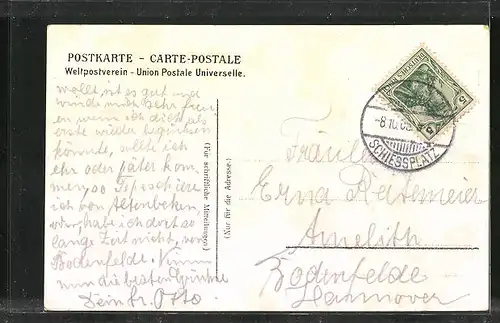 POSTKARTE – CARTE-POSTALE
Weltpostverein - Union Postale Universelle.
wollt, ist es gut und
würde mich sehr freu
en wenn ich dich als
erste wieder begrüßen
könnte, sollte ich
ehr oder später kom
men, so
ich von Altenbeken
habe ich dort so
lange Zeit nicht, von
Bodenfelde. Nimm
nun die besten Grüße
Dein Otto
(Für schriftliche Mitteilungen.)
(Nur für die Adresse.)
5
5
-8.10.
SCHIESSPLATZ
Fräulein
Erna
Amelith
Bodenfelde
Hannover